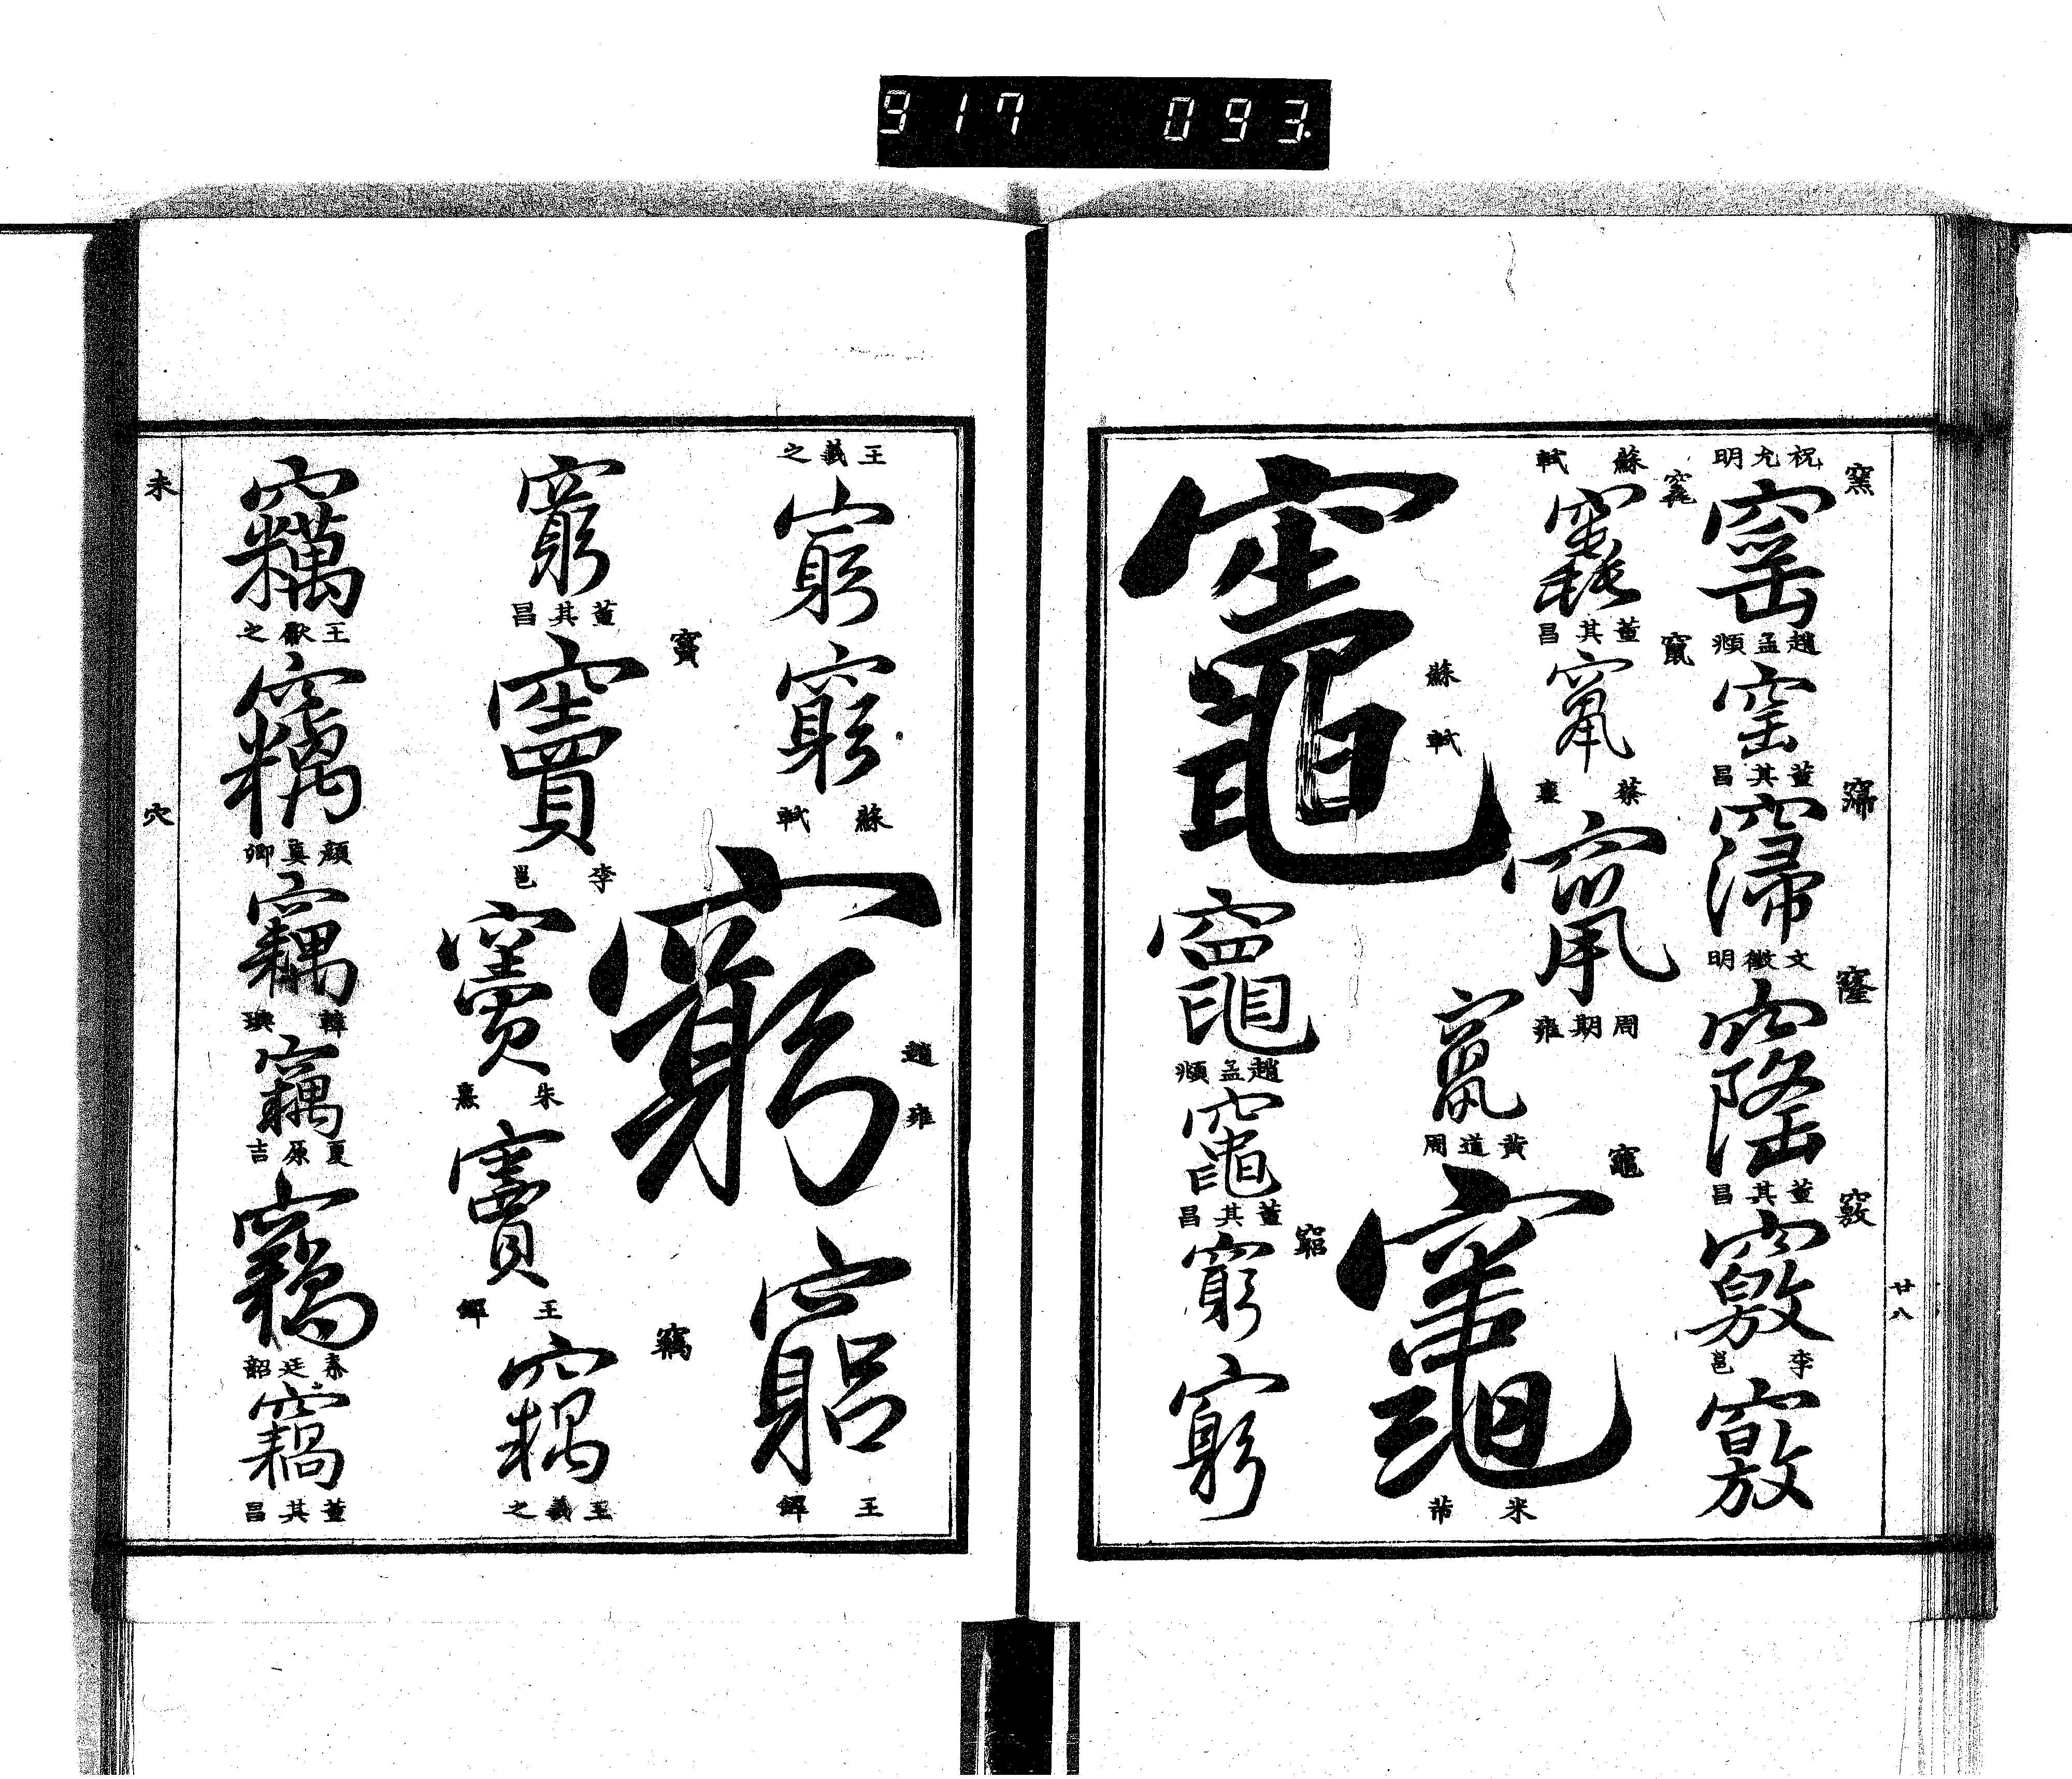 917 093.
窯
窯
祝允明
窑
趙孟頫
𥧲
董其昌
窿
窿
文徵明
竅
竅
董其昌
竅
李邕
廿八
蘇軾
竄
竄
董其昌
竄
蔡襄
竄
周期雍
竈
黃道周
竈
米芾
竈
蘇軾
竈
趙孟頫
竈
董其昌
窮
窮
窮
王羲之
窮
窮
蘇軾
窮
趙雍
窮
王鐸
窮
董其昌
竇
竇
李邕
竇
朱熹
竇
王鐸
竊
竊
王羲之
竊
王獻之
竊
顏真卿
竊
韓琪
竊
夏原吉
竊
泰廷韶
竊
董其昌
未
穴